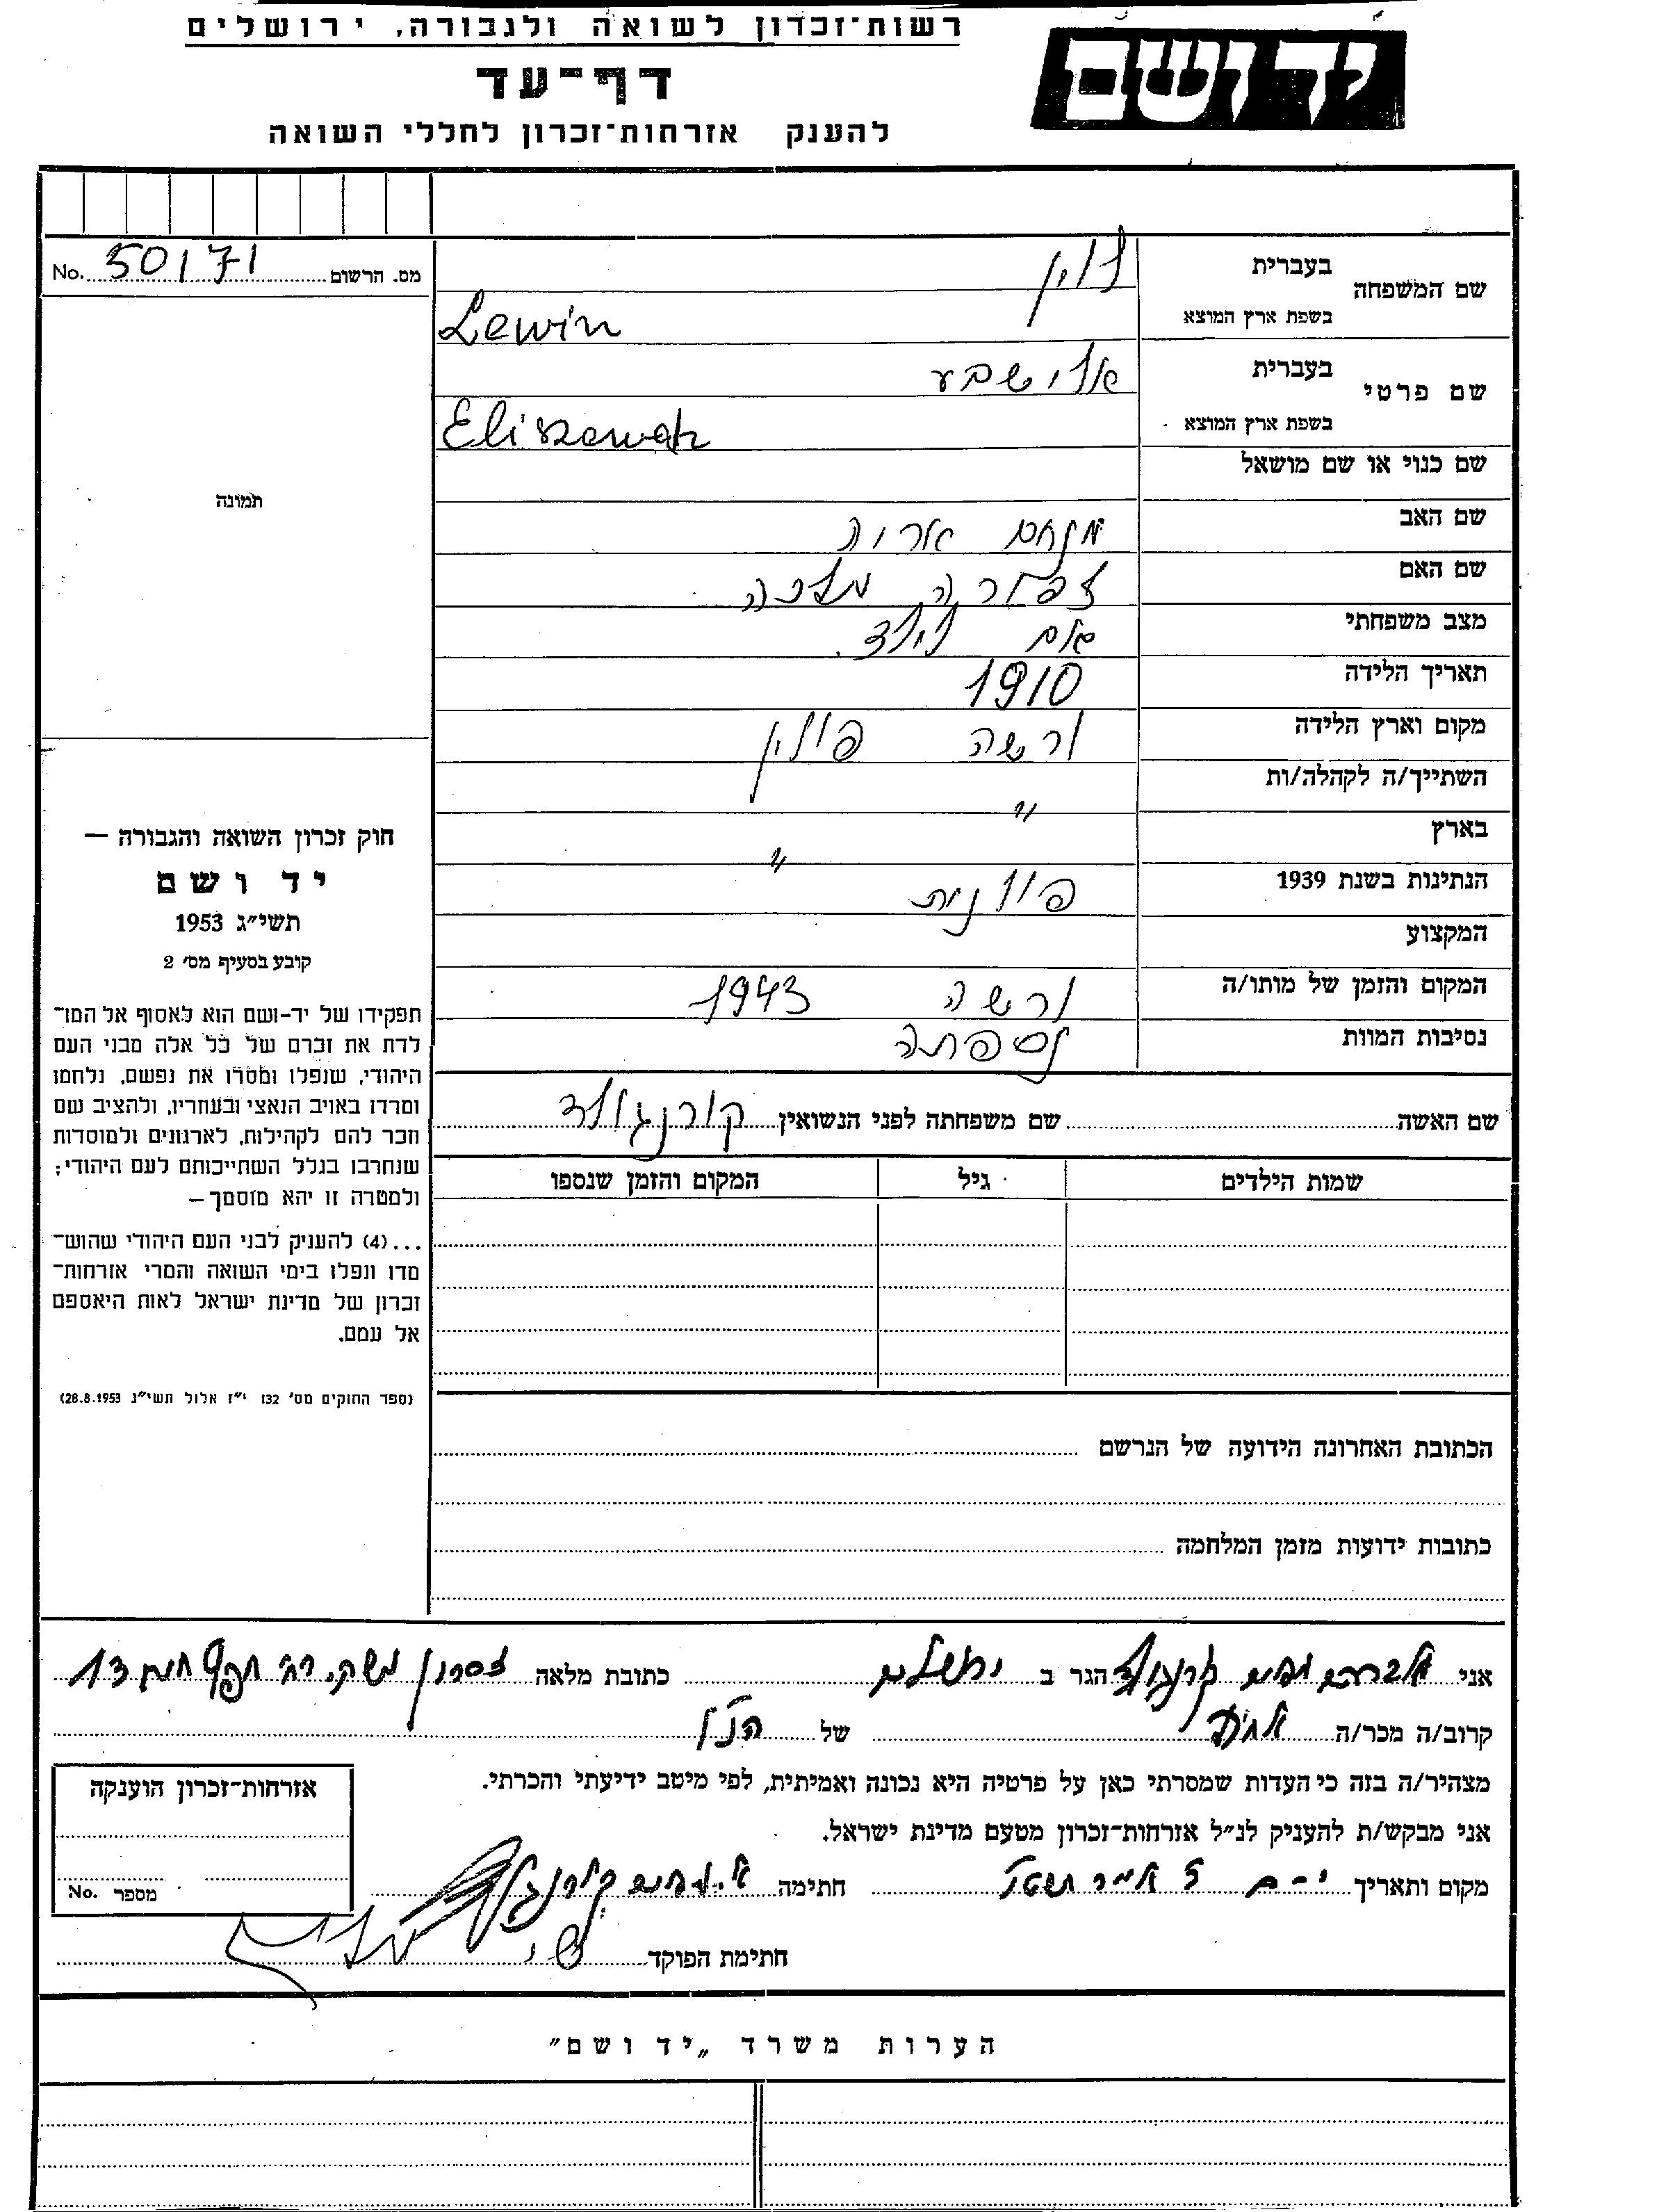 רשות־זכרון לשואה ולגבורה, ירושלים
יד ושם
דף־עד
להענק אזרחות־זכרון לחללי השואה
מס. הרשום 50171 No.
שם המשפחה
בעברית לוין
בשפת ארץ המוצא Lewin
שם פרטי
בעברית אלישבע
בשפת ארץ המוצא Eliszewah
שם כנוי או שם מושאל
תמונה
שם האב מנחם אריה
שם האם צפורה מלכה
מצב משפחתי אם לילד.
תאריך הלידה 1910
מקום וארץ הלידה ורשה פולין
השתייך/ה לקהלה/ות "
בארץ "
הנתינות בשנת 1939 פולנית
המקצוע
המקום והזמן של מותו/ה ורשה 1943
נסיבות המוות נספתה
שם האשה שם משפחתה לפני הנשואין קורנגולד
שמות הילדים גיל המקום והזמן שנספו
חוק זכרון השואה והגבורה —
יד ושם
תשי״ג 1953
קובע בסעיף מס׳ 2
תפקידו של יד-ושם הוא לאסוף אל המו־
לדת את זכרם של כל אלה מבני העם
היהודי, שנפלו ומסרו את נפשם, נלחמו
ומרדו באויב הנאצי ובעוזריו, ולהציב שם
וזכר להם לקהילות, לארגונים ולמוסדות
שנחרבו בגלל השתייכותם לעם היהודי;
ולמטרה זו יהא מוסמך—
...(4) להעניק לבני העם היהודי שהוש־
מדו ונפלו בימי השואה והמרי אזרחות־
זכרון של מדינת ישראל לאות היאספם
אל עמם.
(ספר החוקים מס׳ 132 י״ז אלול תשי״ג 28.8.1953)
הכתובת האחרונה הידועה של הנרשם
כתובות ידועות מזמן המלחמה
אני אברהם קורנגולד הגר ב ירושלים כתובת מלאה 13
קרוב/ה מכר/ה של הנ"ל
מצהיר/ה בזה כי העדות שמסרתי כאן על פרטיה היא נכונה ואמיתית, לפי מיטב ידיעתי והכרתי.
אני מבקש/ת להעניק לנ״ל אזרחות־זכרון מטעם מדינת ישראל.
מקום ותאריך חתימה קורנגולד
חתימת הפוקד
אזרחות־זכרון הוענקה
מספר No.
הערות משרד „יד ושם"